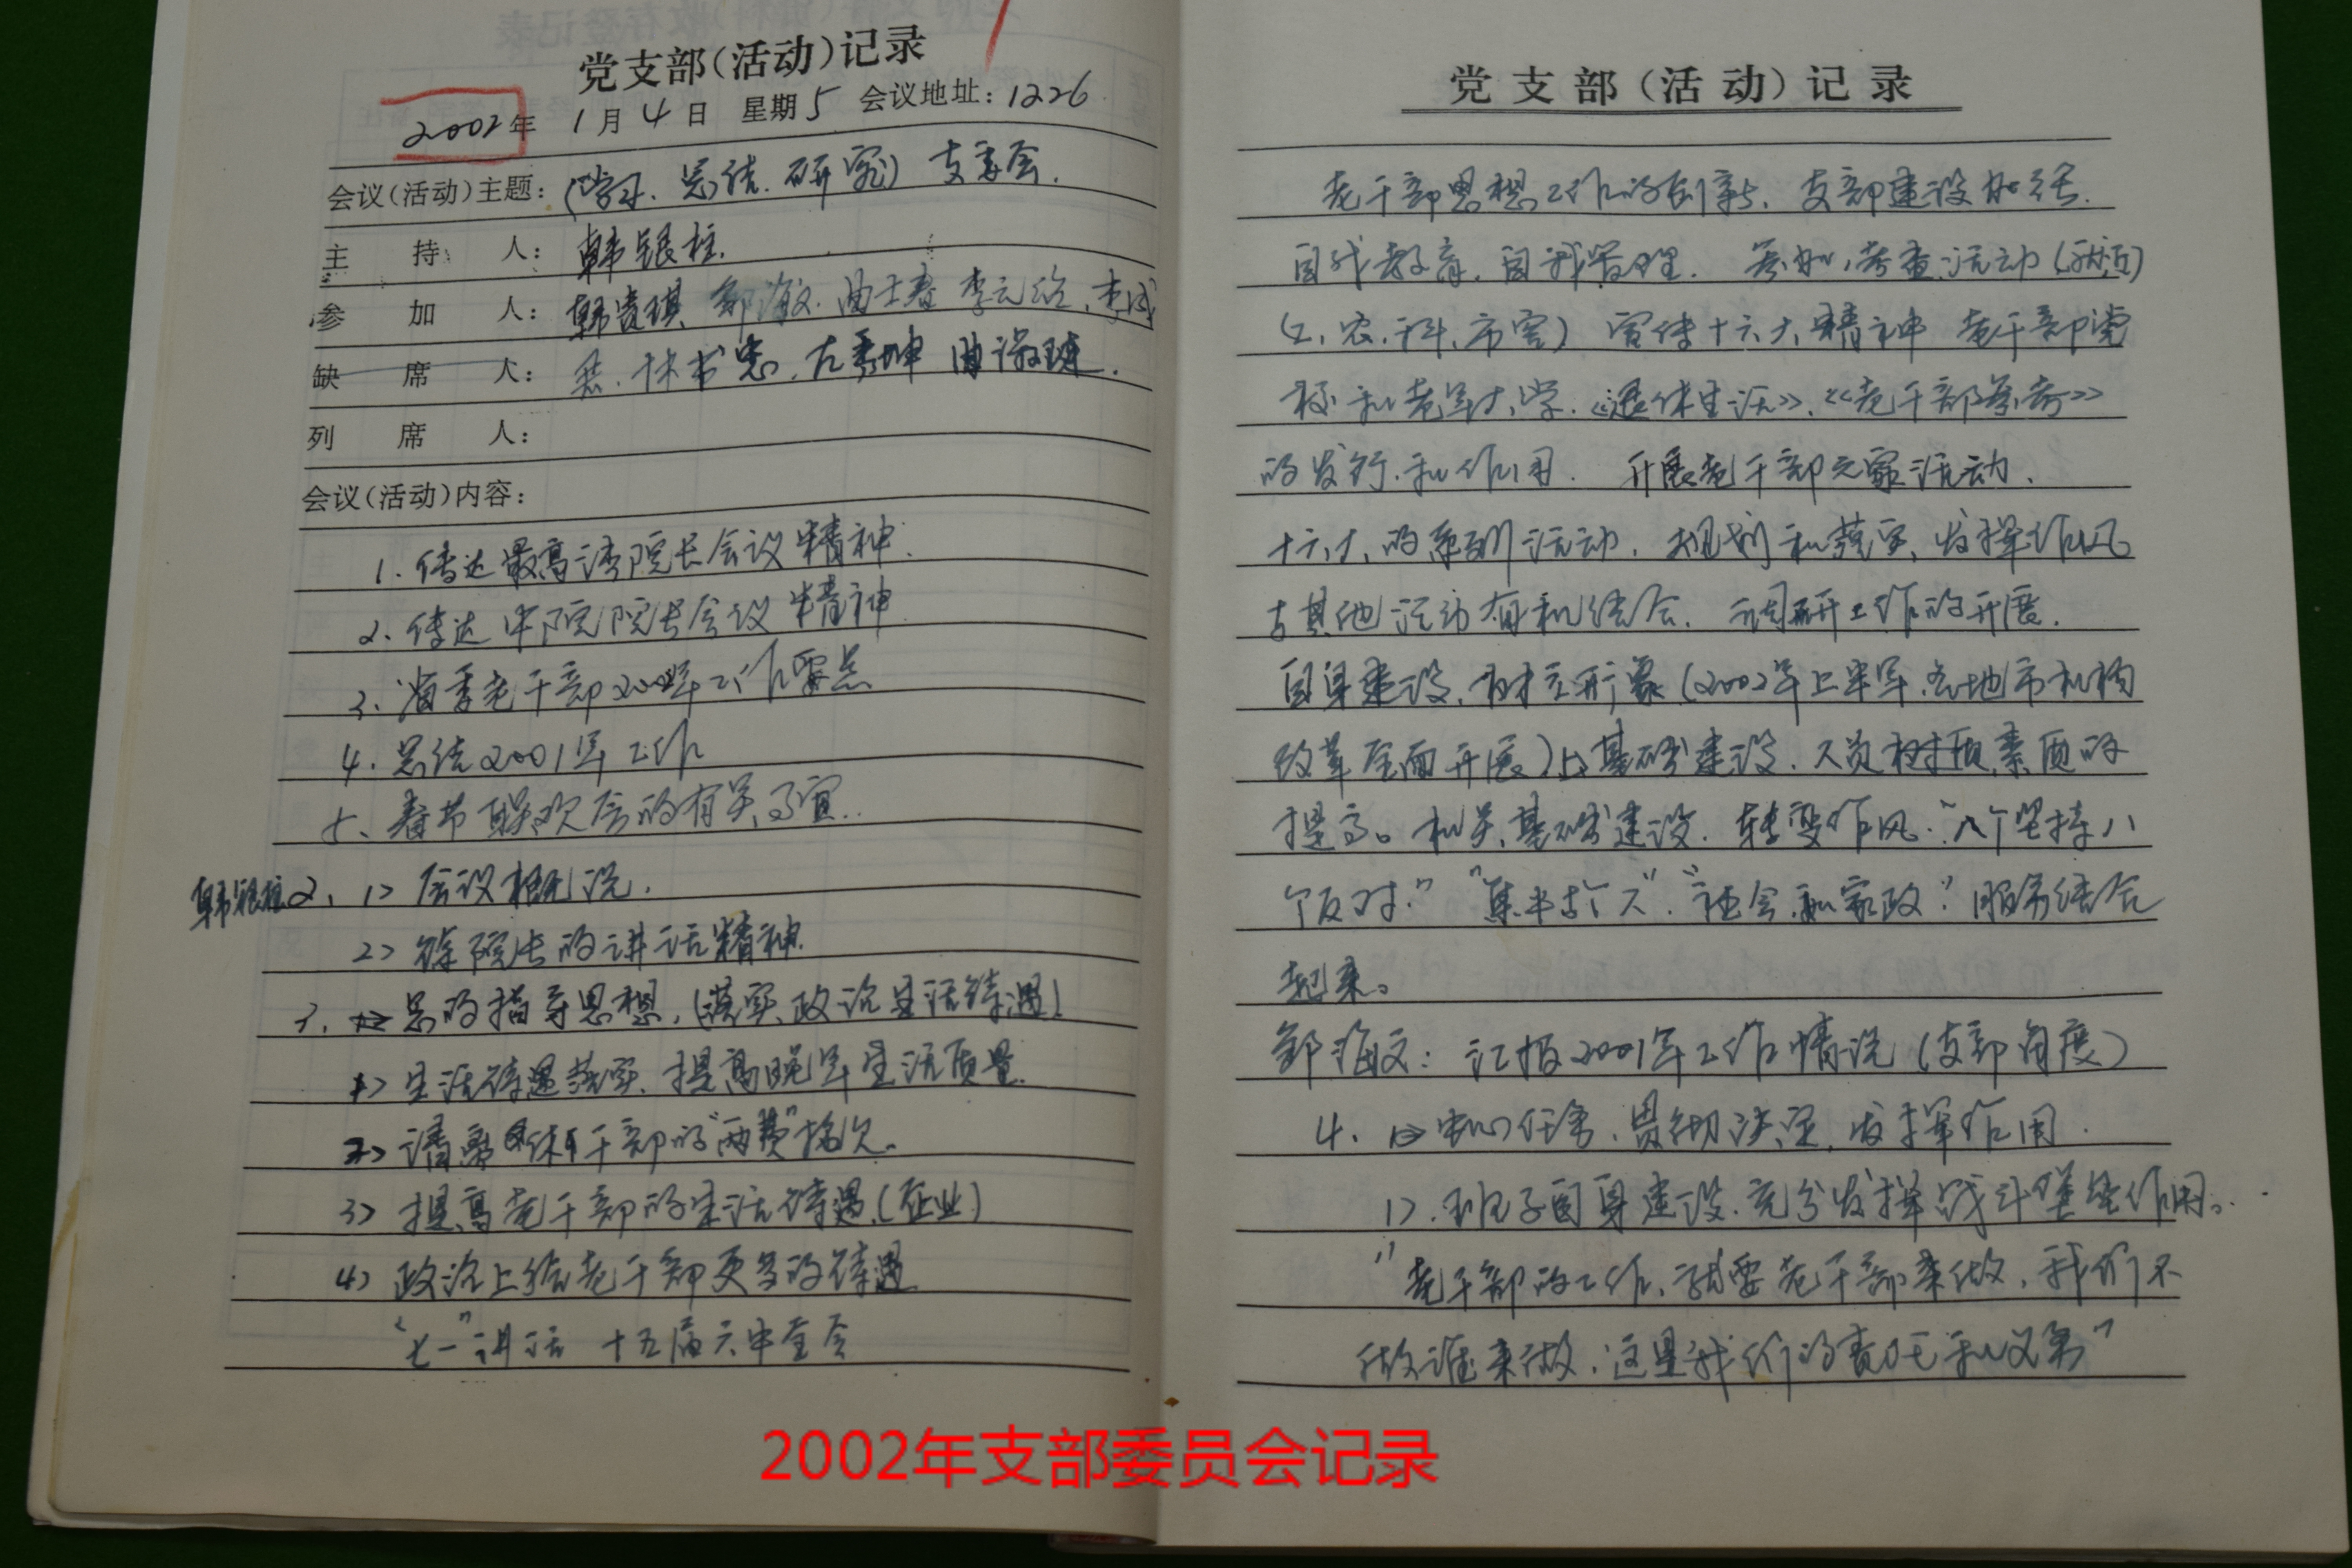 党支部(活动)记录
2002年 1月4日 星期5 会议地址：1226
会议(活动)主题：(学习.总结.研究) 支委会.
主持人：韩银柱.
参加人：韩贵琪 邹海文.曲士春 李元经.李成
缺席人：林书忠.左秀坤 曲淑琏.
列席人：
会议(活动)内容：
1.传达最高法院院长会议精神.
2.传达中院院长会议精神.
3.省委老干部2002年工作要点
4.总结2001年工作
5、春节联欢会的有关事宜..
韩银柱2、1> 会议概况.
2> 院长的讲话精神.
3. 总的指导思想,(落实政治生活待遇)
1> 生活待遇落实.提高晚年生活质量.
2> 离休干部的"两费"拖欠。
3> 提高老干部的生活待遇.(企业)
4> 政治上给老干部更多的待遇
"七一"讲话 十五届六中全会
党支部(活动)记录
老干部思想工作的创新.支部建设加强.
自我教育,自我管理.参加,考查活动(就近)
(工.农.科.市容) 宣传十六大精神 老干部党
校和老年大学.《退休生活》、《老干部参考》
的发行.和作用. 开展老干部文家活动.
十六大的系列活动.规划和落实,发挥作风
与其他活动有机结合.调研工作的开展.
自身建设.树立形象(2002年上半年.各地市机构
改革全面开展)基础建设.人员素质的
提高。机关基础建设.转变作风."八个坚持八
个反对." "集中与个人"."社会和家政."服务结合
起来。
邹海文：汇报2001年工作情况(支部角度)
4. 中心任务.贯彻决定,发挥作用.
1>.班子自身建设.充分发挥战斗堡垒作用。
"老干部的工作,就要老干部来做,我们不
做谁来做.这是我们的责任和义务"
2002年支部委员会记录